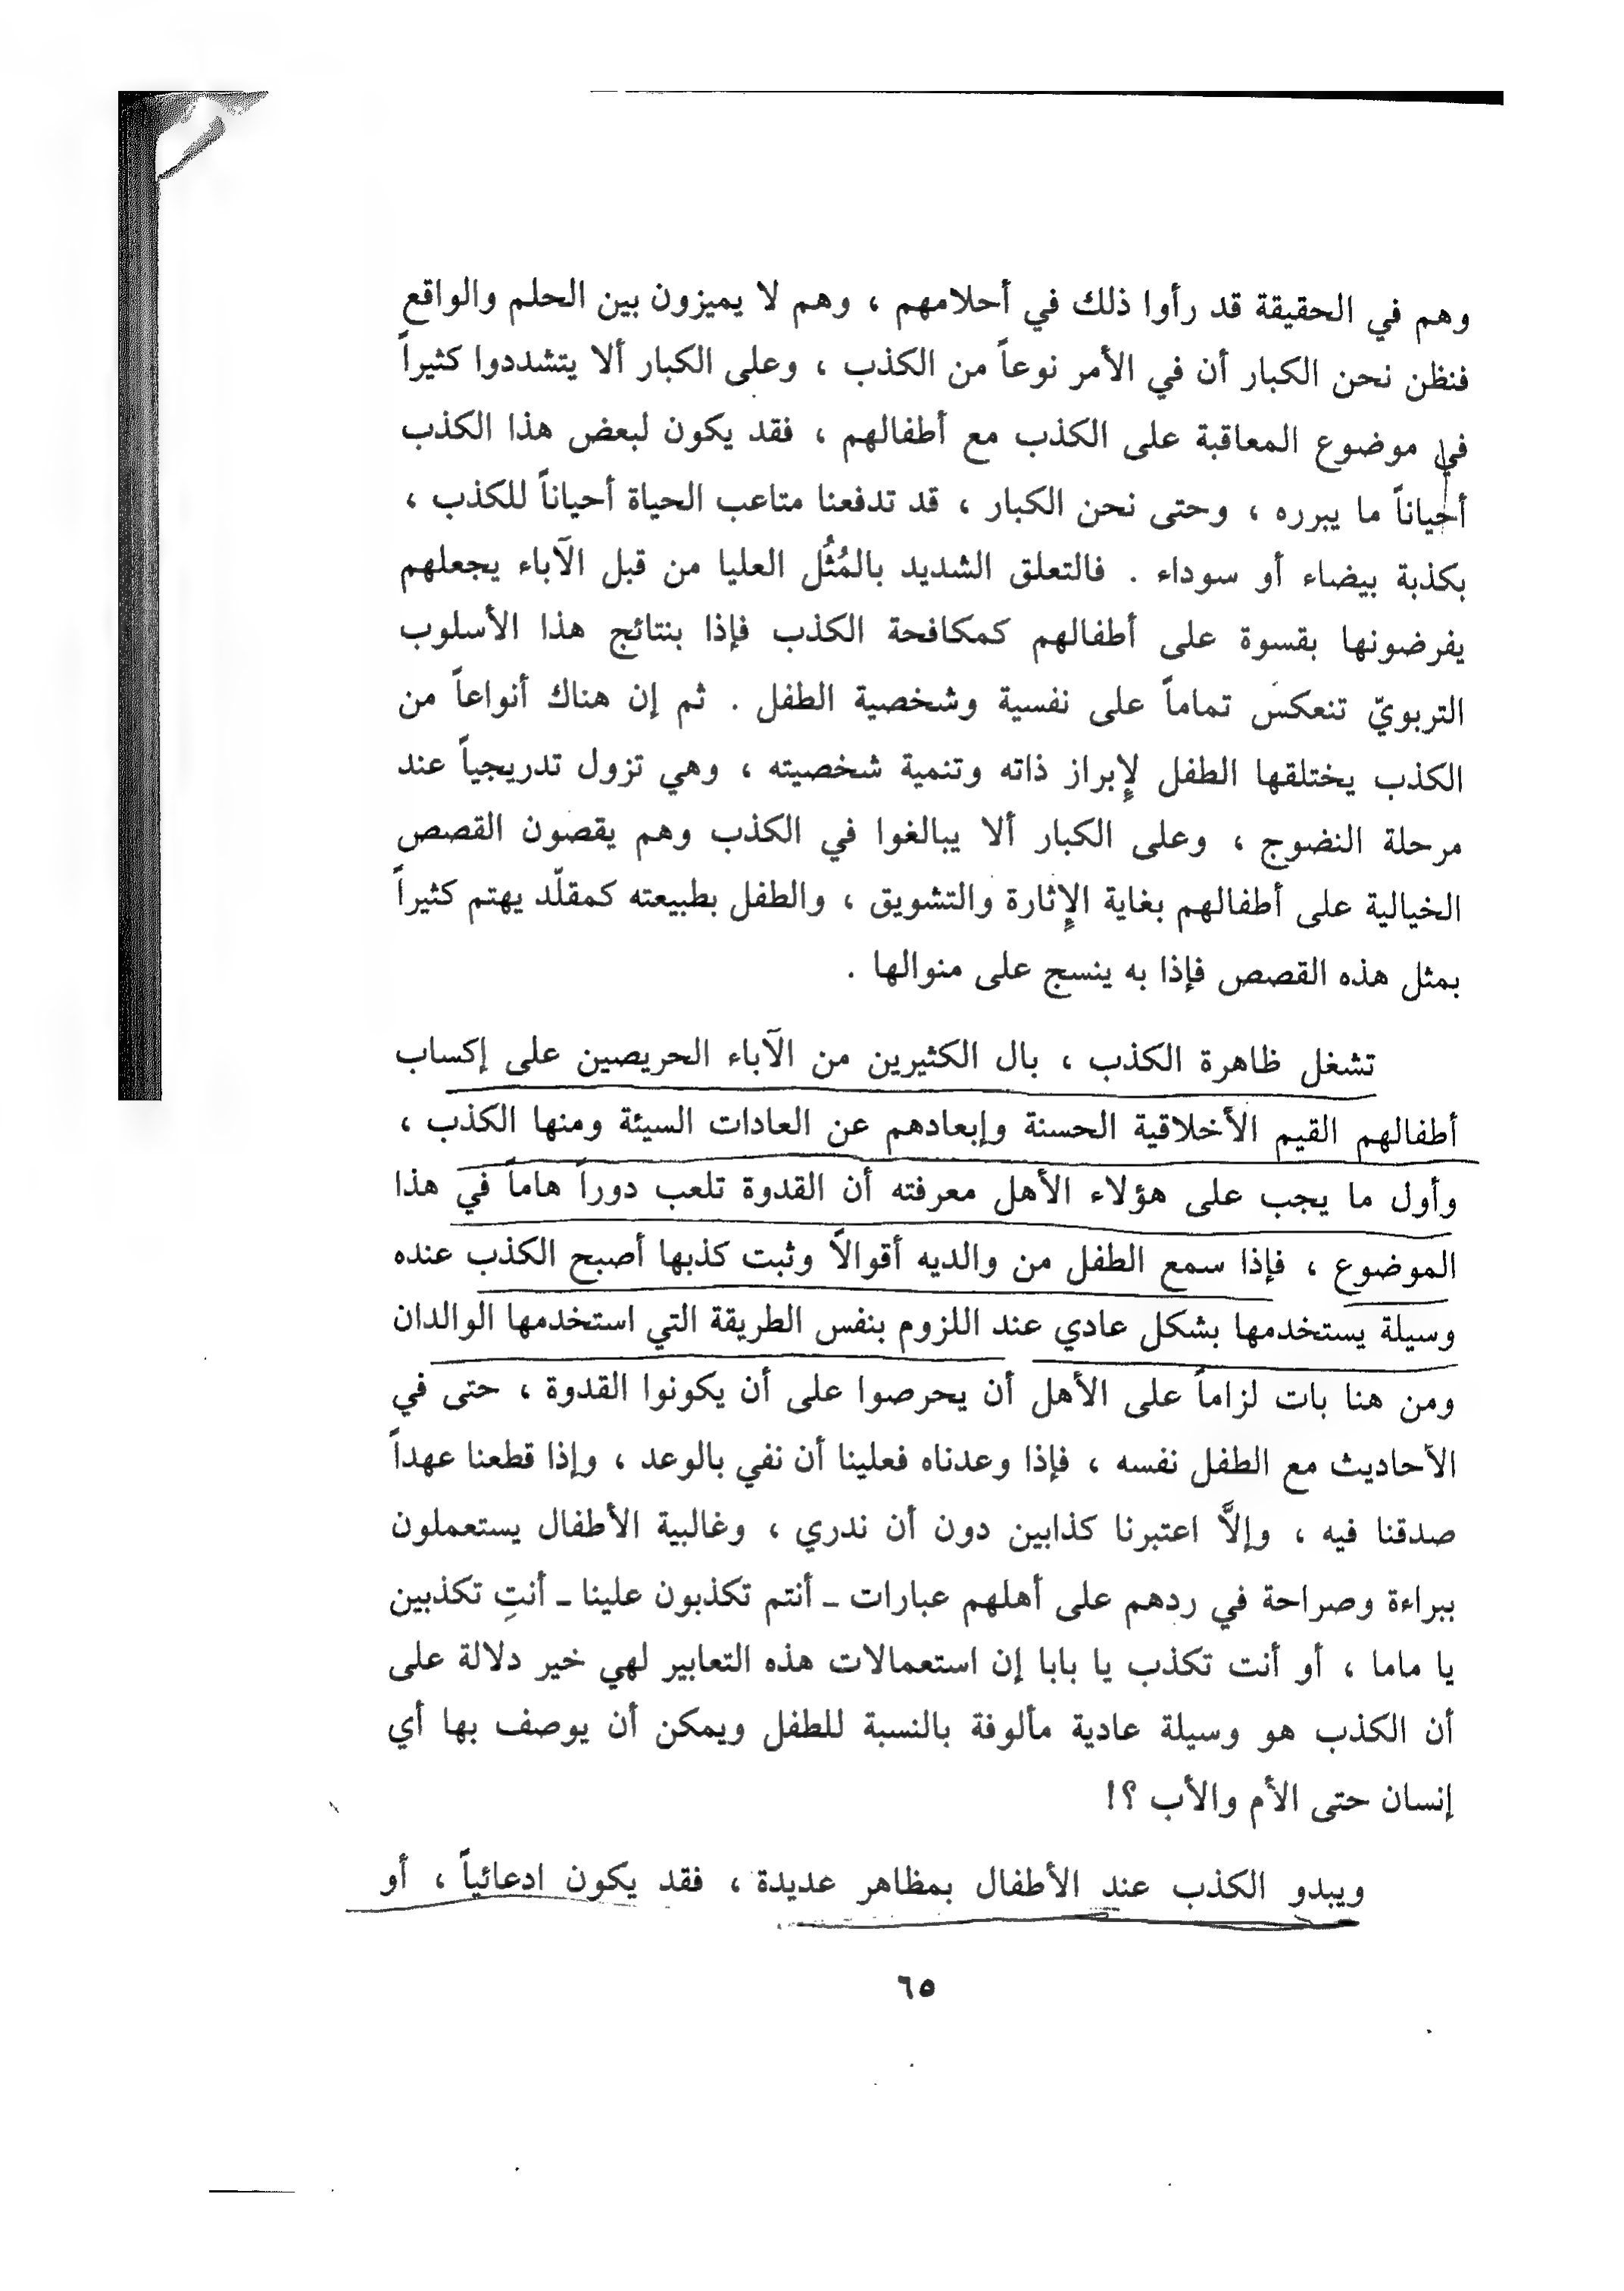 وهم في الحقيقة قد رأوا ذلك في أحلامهم ، وهم لا يميزون بين الحلم والواقع
فنظن نحن الكبار أن في الأمر نوعاً من الكذب ، وعلى الكبار ألا يتشددوا كثيراً
في موضوع المعاقبة على الكذب مع أطفالهم ، فقد يكون لبعض هذا الكذب
أحياناً ما يبرره ، وحتى نحن الكبار ، قد تدفعنا متاعب الحياة أحياناً للكذب ،
بكذبة بيضاء أو سوداء . فالتعلق الشديد بالمُثُل العليا من قبل الآباء يجعلهم
يفرضونها بقسوة على أطفالهم كمكافحة الكذب فإذا بنتائج هذا الأسلوب
التربويّ تنعكس تماماً على نفسية وشخصية الطفل . ثم إن هناك أنواعاً من
الكذب يختلقها الطفل لإبراز ذاته وتنمية شخصيته ، وهي تزول تدريجياً عند
مرحلة النضوج ، وعلى الكبار ألا يبالغوا في الكذب وهم يقصون القصص
الخيالية على أطفالهم بغاية الإثارة والتشويق ، والطفل بطبيعته كمقلّد يهتم كثيراً
بمثل هذه القصص فإذا به ينسج على منوالها .
تشغل ظاهرة الكذب ، بال الكثيرين من الآباء الحريصين على إكساب
أطفالهم القيم الأخلاقية الحسنة وإبعادهم عن العادات السيئة ومنها الكذب ،
وأول ما يجب على هؤلاء الأهل معرفته أن القدوة تلعب دوراً هاماً في هذا
الموضوع ، فإذا سمع الطفل من والديه أقوالاً وثبت كذبها أصبح الكذب عنده
وسيلة يستخدمها بشكل عادي عند اللزوم بنفس الطريقة التي استخدمها الوالدان
ومن هنا بات لزاماً على الأهل أن يحرصوا على أن يكونوا القدوة ، حتى في
الأحاديث مع الطفل نفسه ، فإذا وعدناه فعلينا أن نفي بالوعد ، وإذا قطعنا عهداً
صدقنا فيه ، وإلاَّ اعتبرنا كذابين دون أن ندري ، وغالبية الأطفال يستعملون
ببراءة وصراحة في ردهم على أهلهم عبارات ـ أنتم تكذبون علينا ـ أنتِ تكذبين
يا ماما ، أو أنت تكذب يا بابا إن استعمالات هذه التعابير لهي خير دلالة على
أن الكذب هو وسيلة عادية مألوفة بالنسبة للطفل ويمكن أن يوصف بها أي
إنسان حتى الأم والأب ؟!
ويبدو الكذب عند الأطفال بمظاهر عديدة ، فقد يكون ادعائياً ، أو
٦٥